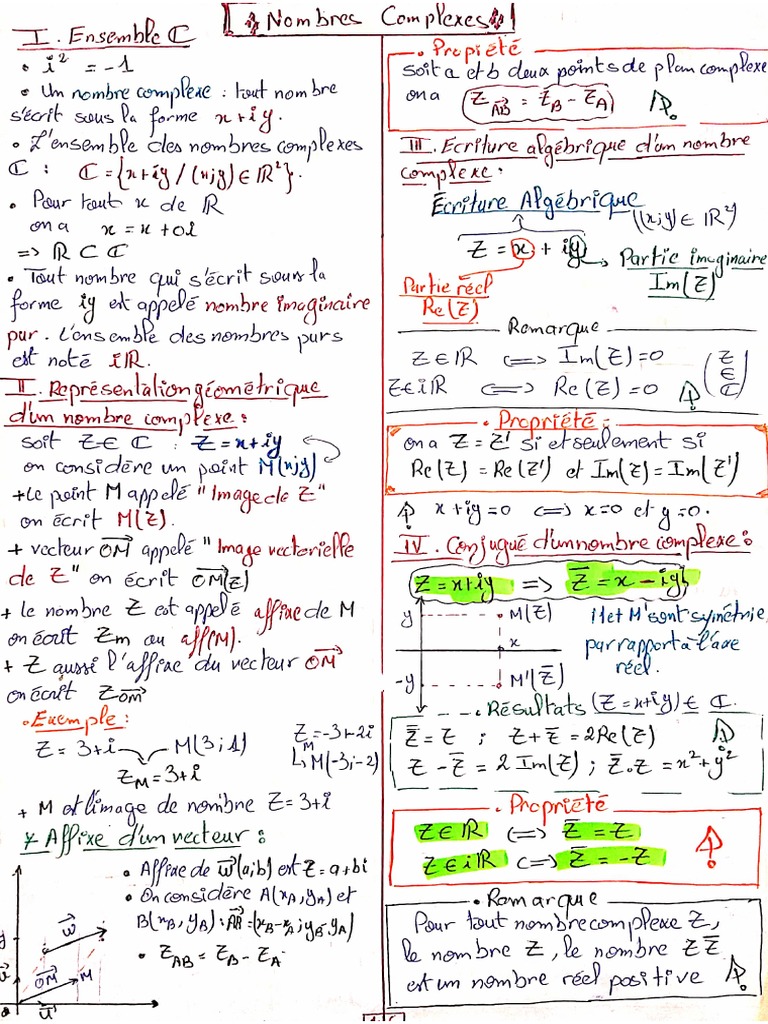 Nombres Complexes
I. Ensemble ℂ
• i² = -1
• Un nombre complexe : tout nombre
s'écrit sous la forme x+iy.
• L'ensemble des nombres complexes
ℂ : ℂ={x+iy / (x;y) ∈ ℝ²}.
• Pour tout x de ℝ
on a x = x + 0i
=> ℝ ⊂ ℂ
• Tout nombre qui s'écrit sous la
forme iy est appelé nombre imaginaire
pur. L'ensemble des nombres purs
est noté iℝ.
II. Représentation géométrique
d'un nombre complexe :
soit Z ∈ ℂ : Z = x+iy
on considère un point M(x;y)
+ Le point M appelé "Image de Z"
on écrit M(Z).
+ vecteur OM→ appelé "Image vectorielle
de Z" on écrit OM→(Z)
+ le nombre Z est appelé affixe de M
on écrit Zm ou aff(M).
+ Z aussi l'affixe du vecteur OM→
on écrit Z OM→
• Exemple :
Z = 3+i M(3;1)
Z_M = 3+i
Z_M = -3+2i
M(-3;-2)
+ M est l'image de nombre Z = 3+i
* Affixe d'un vecteur :
• Affixe de w→(a;b) est Z = a+bi
• On considère A(x_A, y_A) et
B(x_B, y_B) : AB→ = (x_B-x_A ; y_B-y_A)
• Z_AB = Z_B - Z_A
y
w→
OM→
M
u→
• Propriété
soit a et b deux points de plan complexe
on a Z AB→ = Z_B - Z_A
III. Ecriture algébrique d'un nombre
complexe :
Écriture Algébrique
((x;y) ∈ ℝ²)
Z = x + iy
Partie imaginaire
Im(Z)
Partie réel
Re(Z)
Remarque
Z ∈ ℝ <=> Im(Z) = 0
Z ∈ iℝ <=> Re(Z) = 0
(Z ∈ ℂ)
• Propriété :
on a Z = Z' si et seulement si
Re(Z) = Re(Z') et Im(Z) = Im(Z')
x+iy=0 <=> x=0 et y=0.
IV. Conjugué d'un nombre complexe :
Z = x+iy => Z̄ = x - iy
y M(Z)
x
-y M'(Z̄)
M et M' sont symétrie,
par rapport à l'axe
réel.
• Résultats (Z = x+iy) ∈ ℂ.
Z̿ = Z ; Z + Z̄ = 2Re(Z)
Z - Z̄ = 2 Im(Z) ; Z̄.Z = x²+y²
• Propriété
Z ∈ ℝ <=> Z̄ = Z
Z ∈ iℝ <=> Z̄ = -Z
• Remarque
Pour tout nombre complexe Z,
le nombre Z, le nombre Z Z̄
est un nombre réel positive